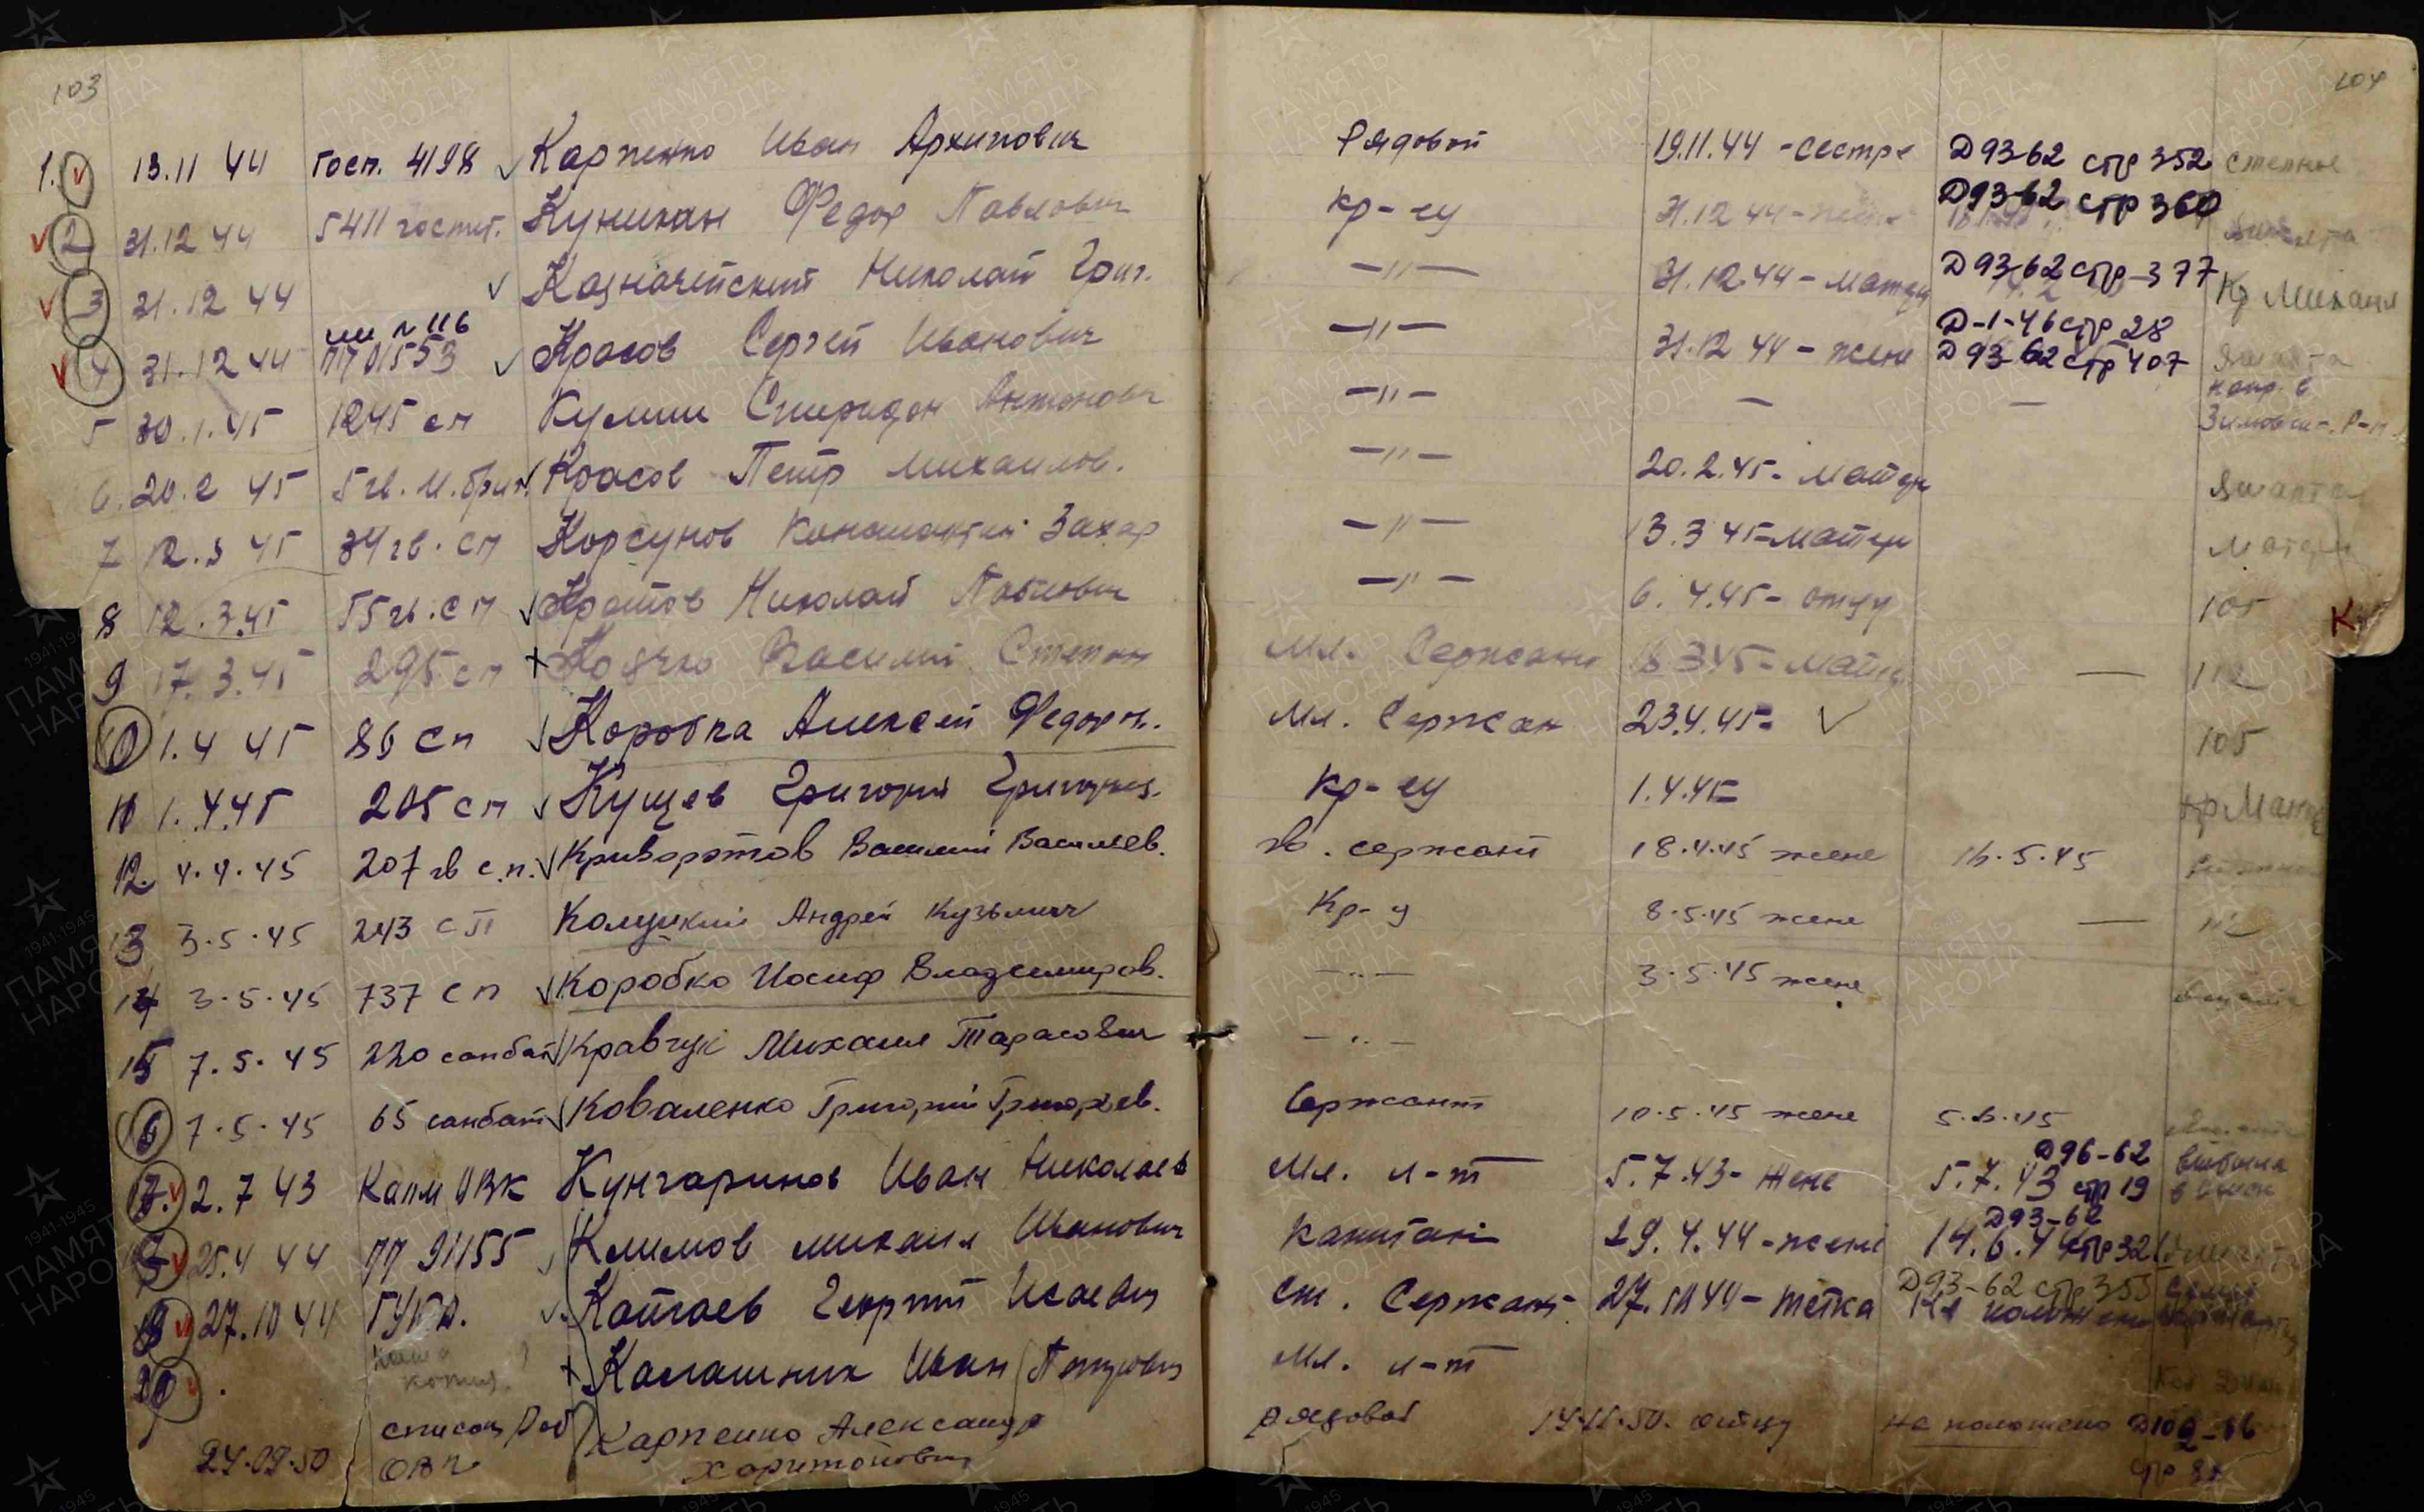 103
104
1. 13.11 44 Госп. 4198 Карпенко Иван Архипович Рядовой 19.11.44 - сестре Д 93-62 стр 352 Степное
2 31.12 44 5411 госпит. Куникан Федор Павлович кр-ец 31.12 44 - Д 93-62 стр 360
3 31.12 44 Казначейский Николай Григ. —"— 31.12.44 - матери Д 93-62 стр 377 Кр Михаил
4 31.12 44 ши № 116 ПП 01553 Красов Сергей Иванович —"— 31.12 44 - жене Д-1-46 стр 28 Д 93-62 стр 407 Яшалта
5 30.1.45 1245 сп Кулиш Спиридон Антонович —"— — — напр. в Зимовн. Р-н
6. 20.2 45 5 гв. м. бриг. Красов Петр Михайлов. —"— 20.2.45 - матери Яшалта
7 12.3 45 34 гв. сп Корсунов Константин Захар —"— 13.3 45 - матери
8 12.3.45 55 гв. сп Кратов Николай Павлович —"— 6. 4.45 - отцу 105
9 17.3.45 295 сп Василий Степан Мл. Сержант 345 - матер. — 112
10 1.4 45 86 сп Коробка Алексей Федоров. Мл. Сержан 23.4.45 - 105
11 1.4.45 205 сп Кущев Григорий Григорьев. кр-ец 1.4.45
12. 4.4.45 207 гв с.п. Криворотов Василий Васильев. гв. сержант 18.4.45 жене 16.5.45
13 3.5.45 243 сп Колуцкий Андрей Кузьмич Кр-ц 8.5.45 жене — 112
14 3.5.45 737 сп Коробко Иосиф Владимиров. —"— 3.5.45 жене
15 7.5.45 220 санбат Кравчук Михаил Тарасович —"—
16 7.5.45 65 санбат Коваленко Григорий Григорьев. Сержант 10.5.45 жене 5.6.45
17. 2.7 43 Капм ОВК Кунгаринов Иван Николаев Мл. л-т 5.7.43 - жене Д96-62 5.7.43 стр 19 выбыла
25.4 44 ПП 91155 Климов Михаил Иванович капитан 29.4.44 - жене Д93-62 14.6.44 стр 321
19 27.10 44 ГУКА. Катаев Георгий Исаевич Ст. Сержант 27.10 44 - тетка Д93-62 стр 355
20 Калашник Иван Петрович Мл. л-т
27.09.50 список ОВК Карпенко Александр Харитонович рядовой 50. отцу не положено Д102-66